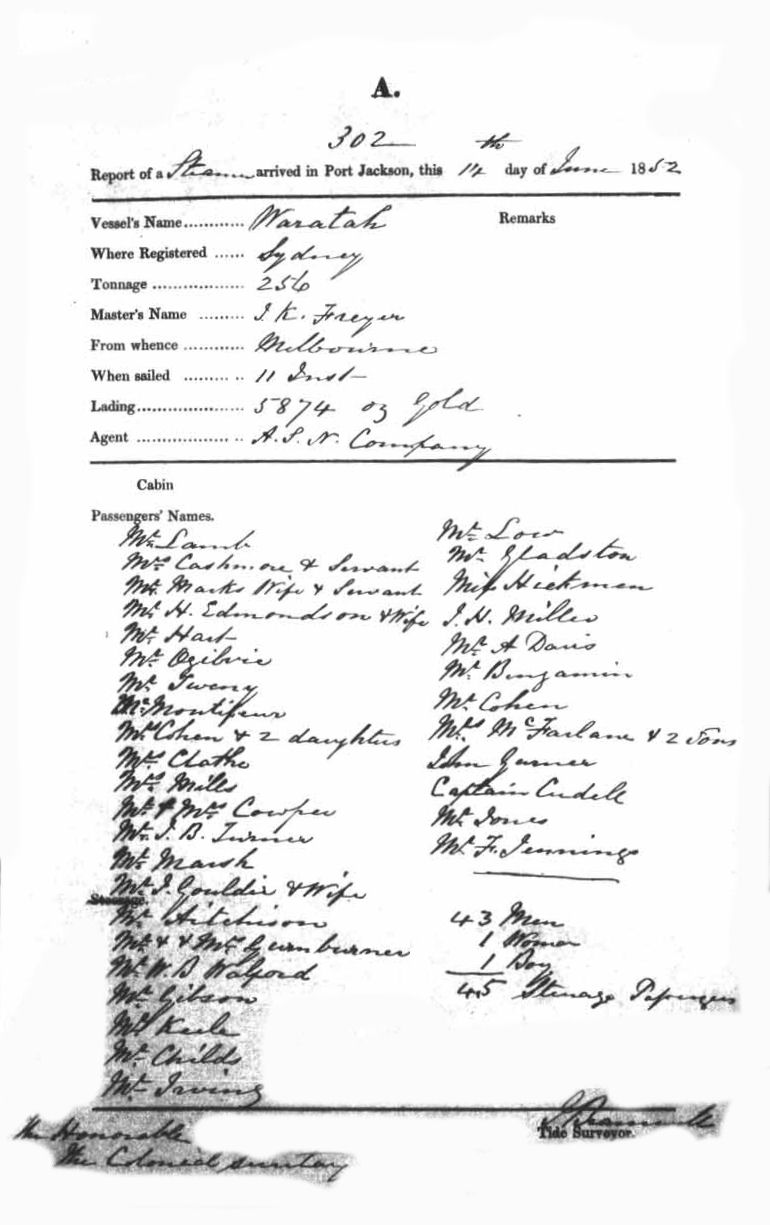 A.
302
Report of a Steamer arrived in Port Jackson, this 14th day of June 1852
Vessel's Name............ Waratah
Remarks
Where Registered ...... Sydney
Tonnage .................. 256
Master's Name ......... J. K. Freyer
From whence ............ Melbourne
When sailed ........... 11 Inst
Lading..................... 5874 oz Gold
Agent ..................... A. S. N. Company
Cabin
Passengers' Names.
Mr. Lamb
Mrs. Cashmore & Servant
Mr. Marks Wife & Servant
Mr. H. Edmondson & Wife
Mr. Hart
Mr. Ogilvie
Mr.
Mr. Montifeur
Mrs. Cohen & 2 daughters
Mrs.
Mrs. Mills
Mr. & Mrs. Cowper
Mr. J. B. Turner
Mr. Marsh
Mr. J. Gouldie & Wife
Steerage.
Mr. Aitchison
Mr. & Mrs.
Mr. W. B. Walford
Mr. Gibson
Mr. Keele
Mr. Childs
Mr. Irving
Mr. Low
Mr. Gladston
Miss Hickman
J. H. Miller
Mr. A Davis
Mr. Benjamin
Mr. Cohen
Mrs. McFarlane & 2 Sons
John Garner
Captain Cudell
Mr. Jones
Mr. F. Jennings
43 Men
1 Woman
1 Boy
45 Steerage Passengers
Tide Surveyor.
The Honorable
The Colonial Secretary